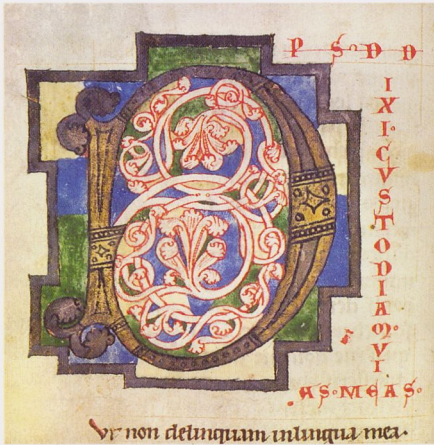 P S·D D
D
IXI·CVSTODIAM·VI
AS·MEAS·
Vt non delinquam inlingua mea·